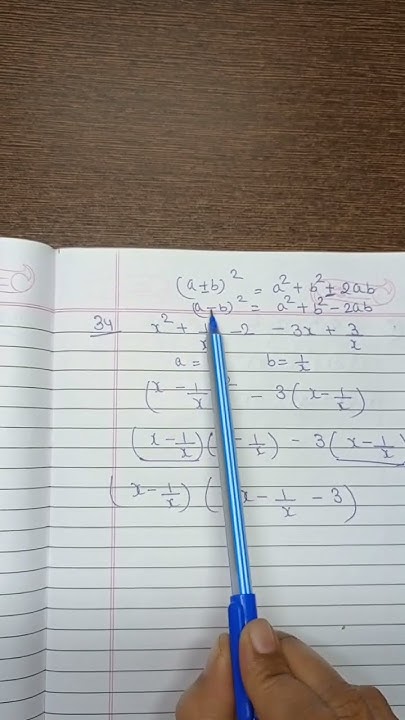 (a±b)² = a² + b² ± 2ab
(a-b)² = a² + b² - 2ab
34 x² + 1 -2 - 3x + 3/x
a = b = 1/x
(x - 1/x)² - 3(x - 1/x)
(x - 1/x)( - 1/x) - 3(x - 1/x
(x - 1/x)(x - 1/x - 3)